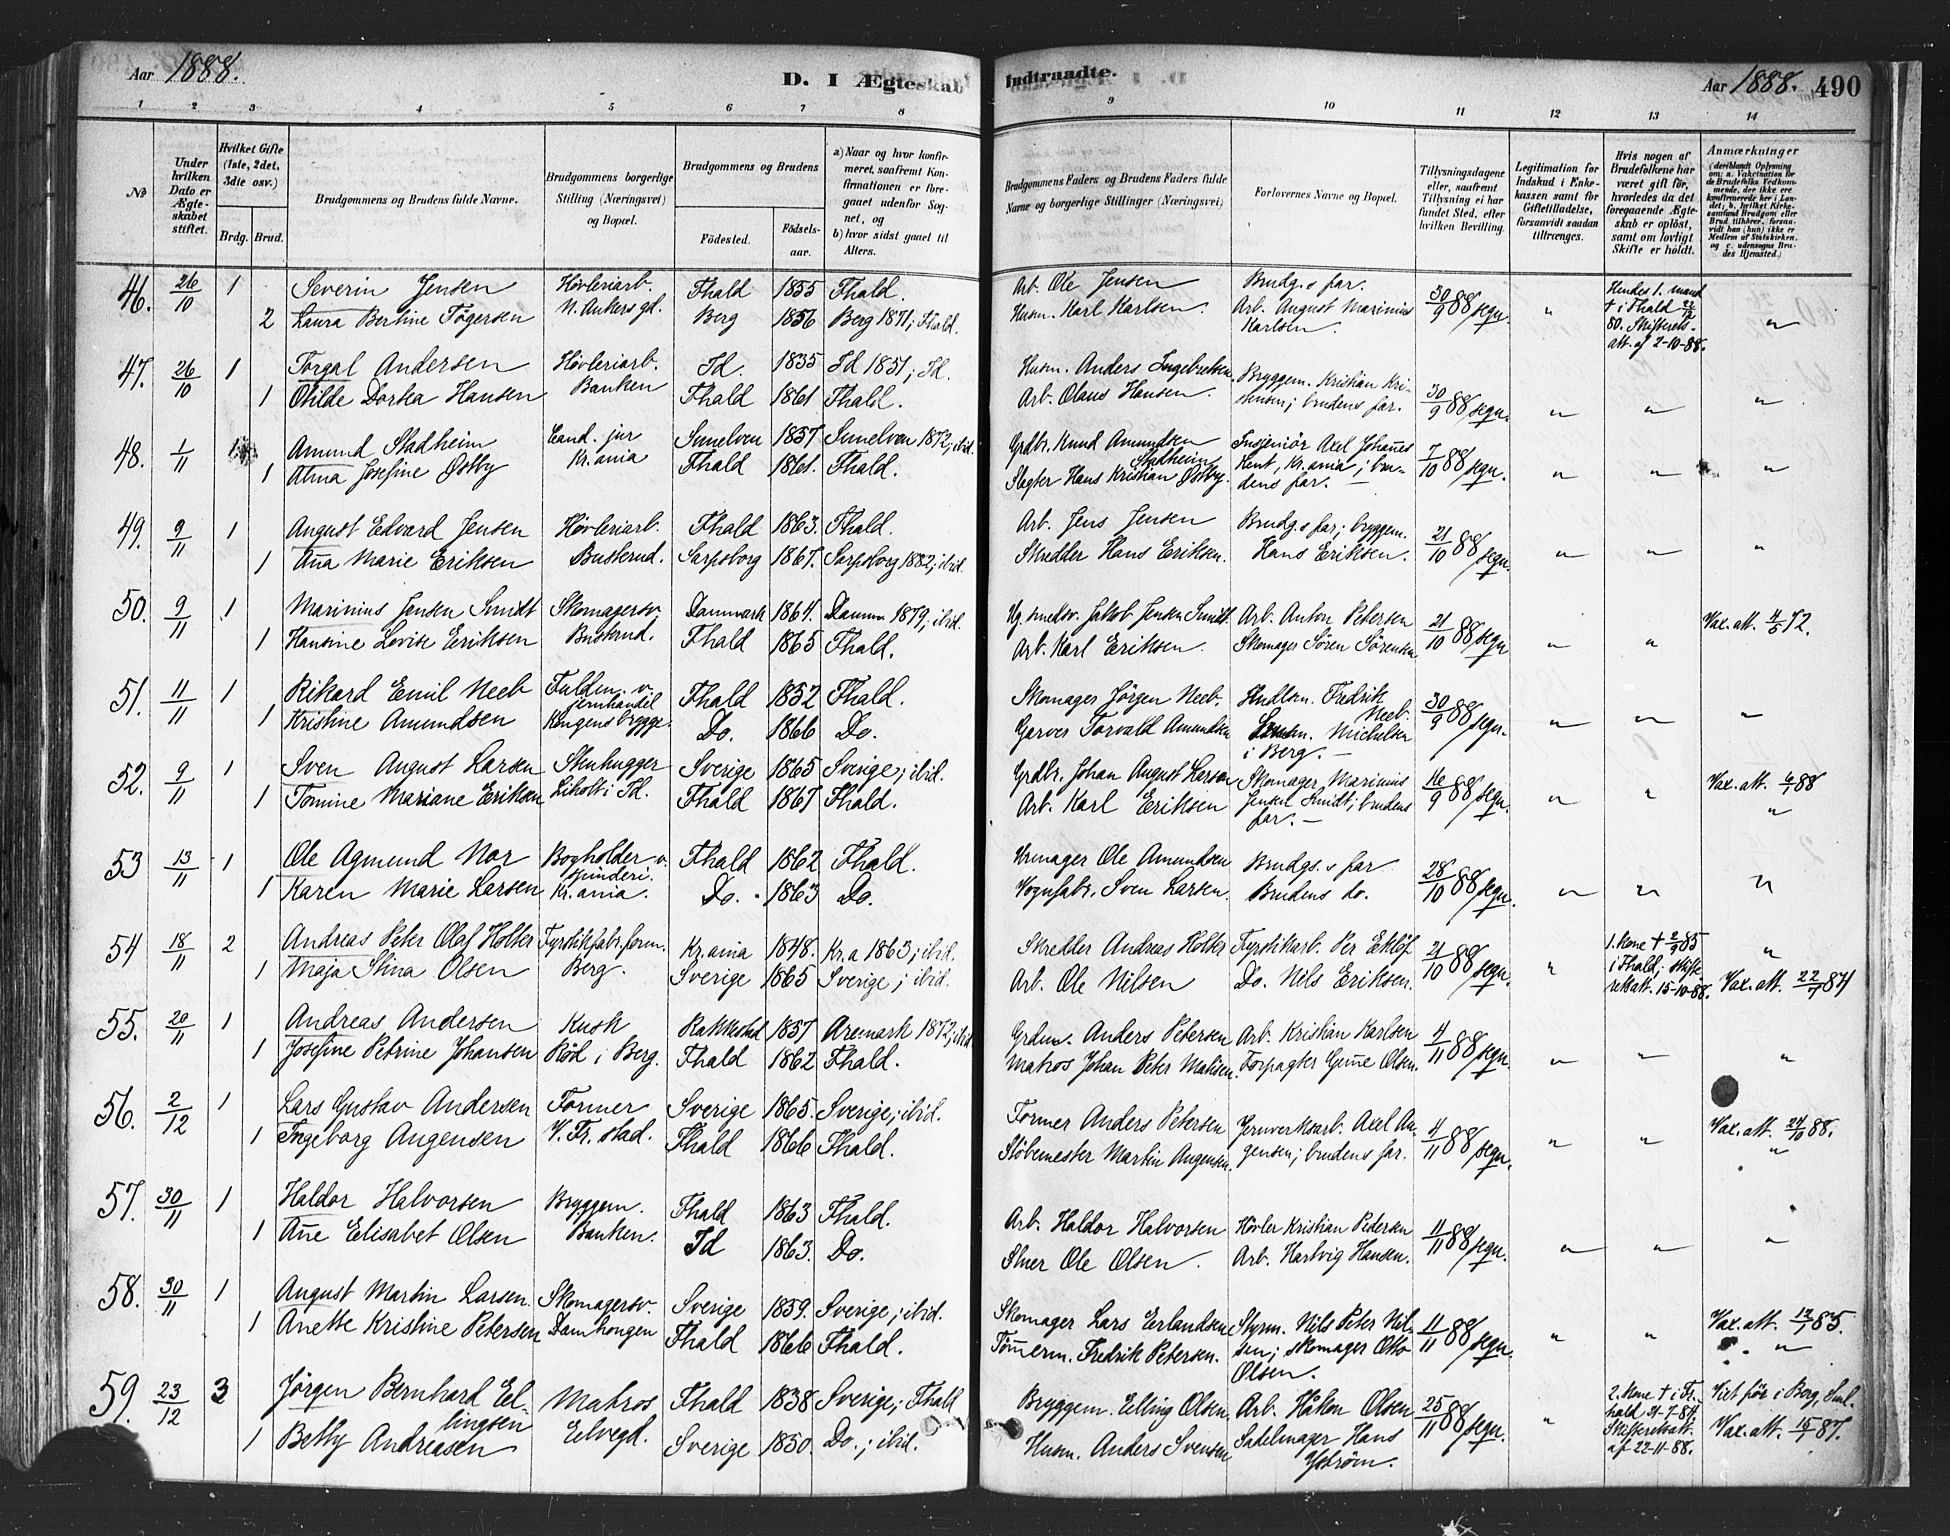 Aar 1888.
D. I Ægteskab
Indtraadte.
Aar 1888. 490
1 2 3 4 5 6 7 8 9 10 11 12 13 14
No
Under hvilken Dato er Ægteskabet stiftet.
Hvilket Gifte (1ste, 2det, 3die osv.)
Brdg. Brud.
Brudgommens og Brudens fulde Navne.
Brudgommens borgerlige Stilling (Næringsvei) og Bopæl.
Brudgommens og Brudens
Fødested. Fødselsaar.
a) Naar og hvor konfirmeret, saafremt Konfirmationen er foregaaet udenfor Sognet, og
b) hvor sidst gaaet til Alters.
Brudgommens Faders og Brudens Faders fulde Navne og borgerlige Stillinger (Næringsvei)
Forlovernes Navne og Bopæl.
Tillysningsdagene eller, saafremt Tillysning ei har fundet Sted, efter hvilken Bevilling.
Legitimation for Indskud i Enkekassen samt for Giftetilladelse, forsaavidt saadan tiltrænges.
Hvis nogen af Brudefolkene har været gift før, hvorledes da det foregaaende Ægteskab er opløst, samt om lovligt Skifte er holdt.
Anmærkninger
(deriblandt Oplysning om: a. Vakcination for de Brudefolks Vedkommende, der ikke ere konfirmerede her i Landet; b. hvilket Kirkesamfund Brudgom eller Brud tilhører, forsaavidt han (hun) ikke er Medlem af Statskirken, og c. udensogns Brudes Hjemsted.)
46. 26/10 1 Severin Jensen Høvleriarb. Fhald 1855 Fhald. Arb. Ole Jensen Brudg.s far. 30/9 88 sequ. " Hendes 1. mand
2 Laura Bertine Tøgersen N. Ankers gd. Berg 1856 Berg 1871; Fhald. Husm. Karl Karlsen. Arb. August Marinius Karlsen. † i Fhald 22/12 80. Skifterets att. af 2-10-88. "
47. 26/10 1 Torgal Andersen Høvleriarb. Id. 1835 Id 1851; Id. Husm. Anders Ingebretsen Bryggem. Kristian Kristensen; brudens far. 30/9 88 sequ. " " "
1 Otilde Dortea Hansen Banken Fhald 1861 Fhald. Arb. Olaus Hansen.
48. 1/11 1 Amund Stadheim Cand. jur Sunelven 1857 Sunelven 1872; ibid. Grdbr. Knud Amundsen Stadheim Insjeniør Axel Johannes Lent, Kr.ania; brudens far. 7/10 88 sequ. " " "
1 Alma Josefine Østby Kr.ania Fhald 1861. Fhald. Slagter Hans Kristian Østby.
49. 9/11 1 August Edvard Jensen Høvleriarb. Fhald 1863. Fhald. Arb. Jens Jensen Brudg.s far; bryggem. Hans Eriksen. 21/10 88 sequ. " " "
1 Anna Marie Eriksen Busterud. Sarpsborg 1867. Sarpsborg 1882; ibid. Skrædder Hans Eriksen.
50. 9/11 1 Marinius Jensen Smidt Skomagersv. Danmark 1864. Danm. 1879; ibid. Ug. smedsv. Jakob Jensen Smidt. Arb. Anton Petersen 21/10 88 sequ " " Vax. att. 4/5 72.
1 Hansine Lovise Eriksen Busterud. Fhald 1865 Fhald. Arb. Karl Eriksen. Skomager Søren Sørensen
51. 11/11 1 Rikard Emil Neeb Fuldm. v. jernhandel Fhald 1852 Fhald. Skomager Jørgen Neeb. Hndlsm. Fredrik Neeb. 30/9 88 sequ. " " "
1 Kristine Amundsen Kongens brygge. Do. 1866 Do. Garver Torvald Amundsen Michelsen i Berg.
52. 9/11 1 Sven August Larsen Stenhugger Sverige 1865 Sverige; ibid. Grdbr. Johan August Larson Skomager Marinius Jensen Smidt; brudens far. 16/9 88 sequ. " " Vax. att. 6/1 88
1 Tomine Mariane Eriksen Liholt i Id. Fhald 1867 Fhald. Arb. Karl Eriksen "
53 13/11 1 Ole Agmund Nor Bogholder v. spinderi. Fhald 1862 Fhald. Urmager Ole Amundsen Brudg.s far 28/10 88 sequ. " " "
1 Karen Marie Larsen Kr.ania. Do. 1863 Do. Vognfabr. Sven Larsen. Brudens do.
54 18/11 2 Andreas Peter Olaf Holter Fyrstikfabr.form. Kr.ania 1848. Kr.a 1863; ibid. Skredder Andreas Holter Fyrstikarb. Per Eklöf 21/10 88 sequ. " 1. kone † 2/9 85 i Fhald; skifterets att. 15-10-88. "
1 Maja Stina Olsen Berg. Sverige 1865 Sverige; ibid. Arb. Ole Nilsen Do. Nils Eriksen. Vax. att. 22/7 84
55. 20/11 1 Andreas Andersen Kusk Rakkestad 1857 Aremark 1872; ibid Grdm. Anders Petersen Arb. Kristian Karlsen 4/11 88 sequ. " " "
1 Josefine Petrine Johansen Rød i Berg. Fhald 1862 Fhald. Matros Johan Peter Matisen. Forpagter Gunne Olsen.
56. 2/12 1 Lars Gustav Andersen Former Sverige 1865. Sverige; ibid. Former Anders Petersen Jernverksarb. Axel Augensen; brudens far. 4/11 88 sequ. " " Vax. att. 24/10 88.
1 Ingeborg Augensen V. Fr.stad. Fhald 1866 Fhald. Støbemester Martin Augensen. "
57. 30/11 1 Haldor Halvorsen Bryggem. Fhald 1863 Fhald. Arb. Haldor Halvorsen Høvler Kristian Pedersen 11/11 88 sequ. " " "
1 Anne Elisabet Olsen Banken. Id 1863. Do. Ole Olsen. Arb. Hartvig Hansen. "
58. 30/11 1 August Martin Larsen. Skomagersv. Sverige 1859. Sverige; ibid. Skomager Lars Erlandsen Styrm. Nils Peter Nilsen; skomager Otto Olsen. 11/11 88 sequ. " " Vax. att. 12/1 85.
1 Anette Kristine Petersen Damhougen Fhald 1866 Fhald. Tømmerm. Fredrik Petersen. "
59. 23/12 3 Jørgen Bernhard Ellingsen Matros Fhald 1838 Sverige; Fhald Bryggem. Elling Olsen. Arb. Håkon Olsen 25/11 88 sequ. " 2. kone † i Frhald 21-7-84. Skifteretsatt. af 22-11-88. Viet før i Berg,
1 Betty Andreasen Elvegd. Sverige 1850. Do.; ibid. Husm. Anders Svensen Sadelmager Hans Yström. Vax. att. 15/1 87.